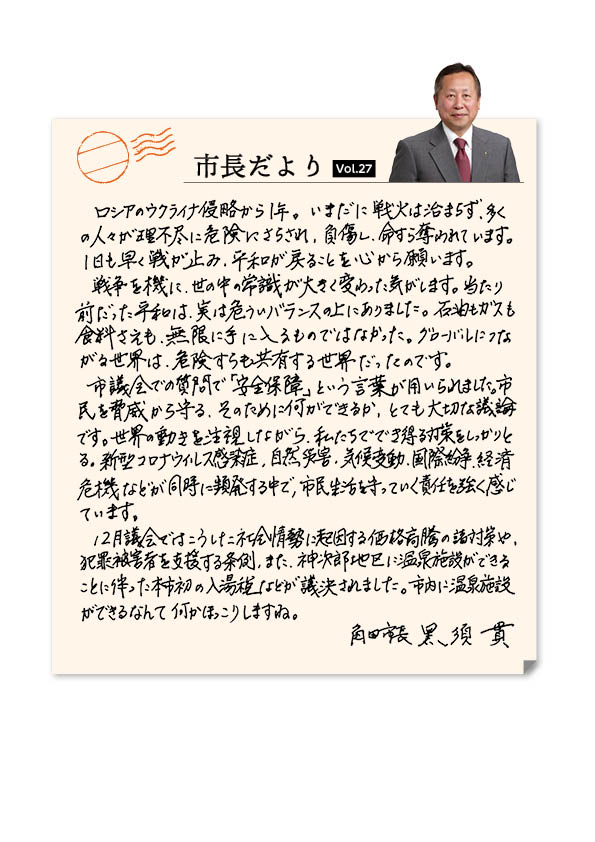 市長だより Vol.27
ロシアのウクライナ侵略から1年。いまだに戦火は治まらず、多く
の人々が理不尽に危険にさらされ、負傷し、命すら奪われています。
1日も早く戦が止み、平和が戻ることを心から願います。
戦争を機に、世の中の常識が大きく変わった気がします。当たり
前だった平和は、実は危ういバランスの上にありました。石油もガスも
食料さえも、無限に手に入るものではなかった。グローバルにつな
がる世界は、危険すらも共有する世界だったのです。
市議会での質問で「安全保障」という言葉が用いられました。市
民を脅威から守る、そのために何ができるか、とても大切な議論
です。世界の動きを注視しながら、私たちででき得る対策をしっかりと
る。新型コロナウィルス感染症、自然災害、気候変動、国際紛争、経済
危機などが同時に頻発する中で、市民生活を守っていく責任を強く感じ
ています。
12月議会ではこうした社会情勢に起因する価格高騰の諸対策や、
犯罪被害者を支援する条例、また、神次郎地区に温泉施設ができる
ことに伴った本市初の「入湯税」などが議決されました。市内に温泉施設
ができるなんて何かほっこりしますね。
角田市長 黒須 貫